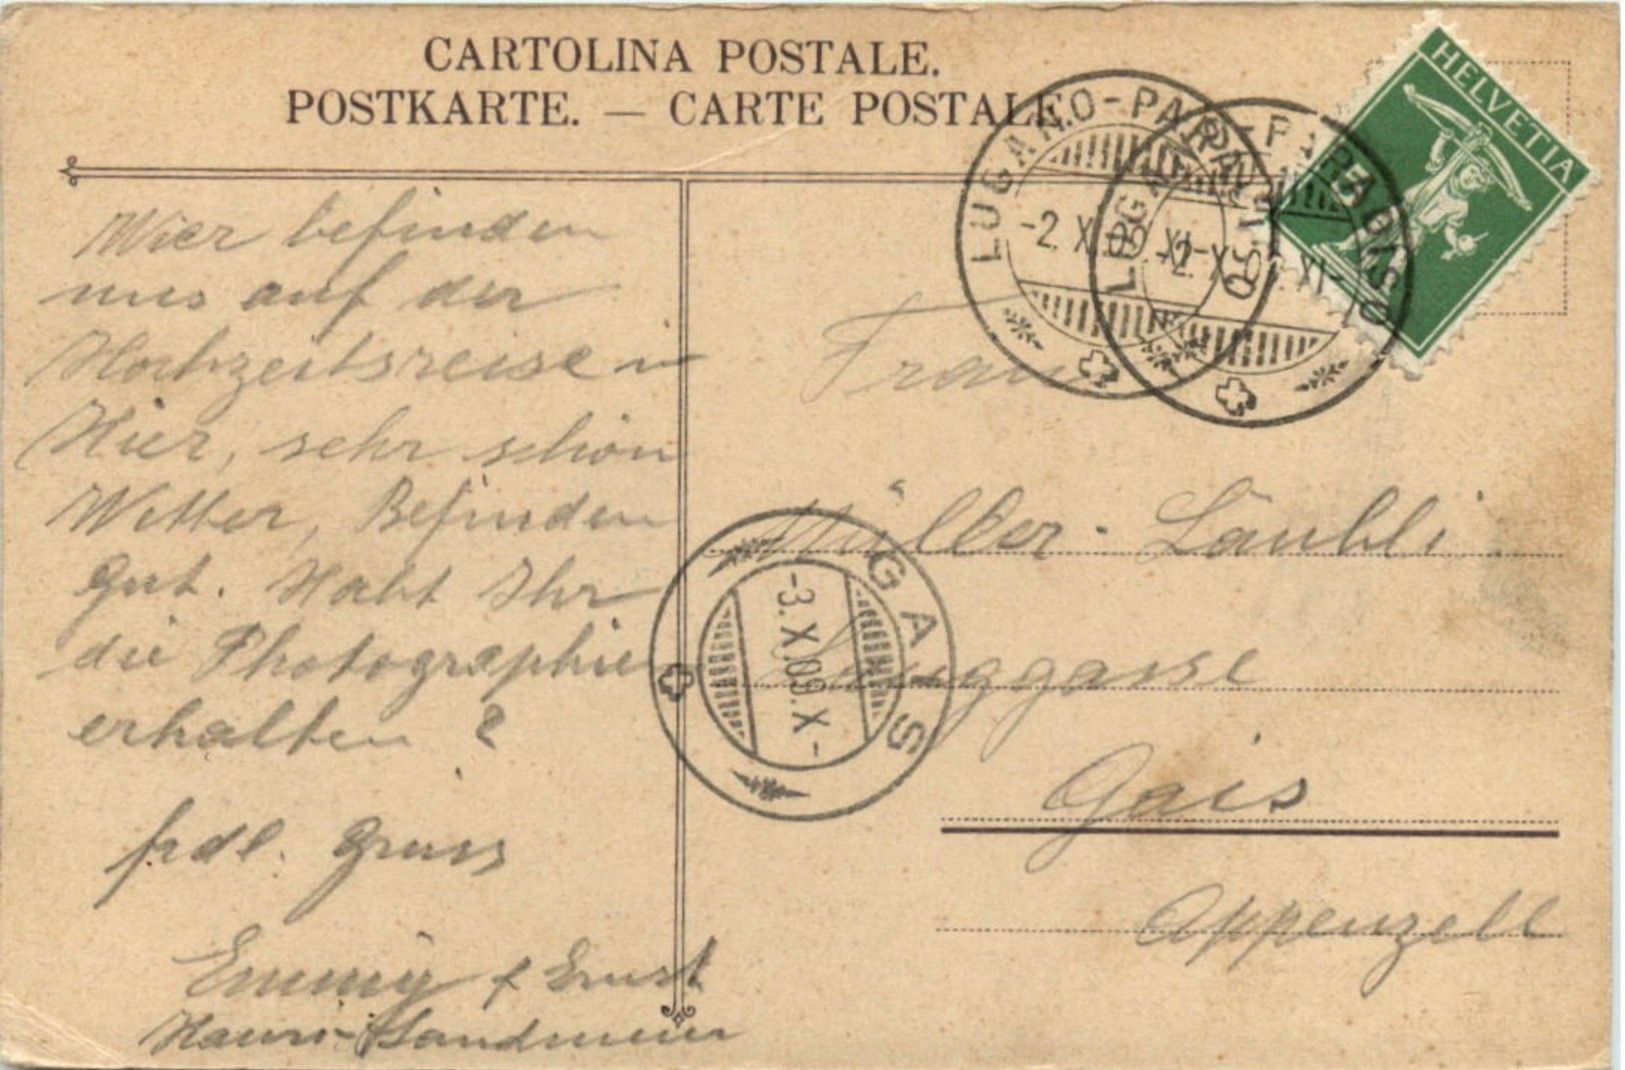 CARTOLINA POSTALE.
POSTKARTE. — CARTE POSTALE.
HELVETIA
LUGANO-PARADISO
-2. X. 09. XI-
LUGANO-PARADISO
-2. X. XI-
Wier befinden
uns auf der
Hochzeitsreise
Hier, sehr schön
Wetter, Befinden
Gut. Habt Ihr
die Photographie
erhalten ?
frdl. Gruss
Emmy & Ernst
Hauri-Sandmeier
Frau
Müller - Läubli
Langgasse
Gais
Appenzell
GAIS
-3. X. 09. X-